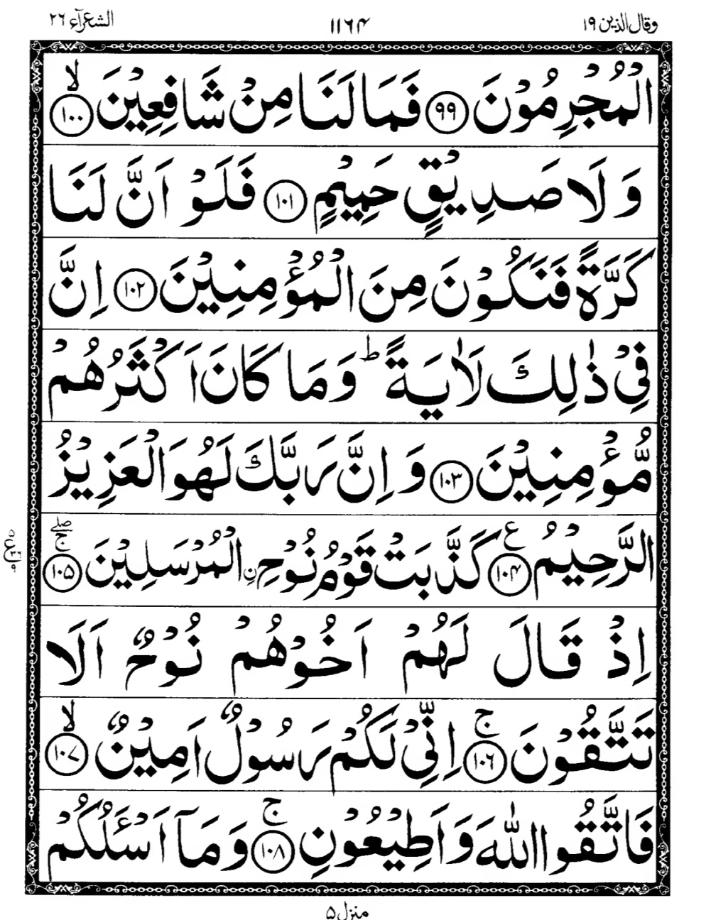 وقال الذين ۱۹ ۱۱۶۴ الشعرآء ۲۶
الْمُجْرِمُوْنَ ﴿۹۹﴾ فَمَا لَنَا مِنْ شَافِعِيْنَ ﴿۱۰۰﴾ۙ
وَلَا صَدِيْقٍ حَمِيْمٍ ﴿۱۰۱﴾ فَلَوْ اَنَّ لَنَا
كَرَّةً فَنَكُوْنَ مِنَ الْمُؤْمِنِيْنَ ﴿۱۰۲﴾ اِنَّ
فِيْ ذٰلِكَ لَاٰيَةً ؕ وَمَا كَانَ اَكْثَرُهُمْ
مُّؤْمِنِيْنَ ﴿۱۰۳﴾ وَاِنَّ رَبَّكَ لَهُوَ الْعَزِيْزُ
الرَّحِيْمُ ﴿۱۰۴﴾ ع كَذَّبَتْ قَوْمُ نُوْحِ ن ِالْمُرْسَلِيْنَ ﴿۱۰۵﴾ صلے ج
اِذْ قَالَ لَهُمْ اَخُوْهُمْ نُوْحٌ اَلَا
تَتَّقُوْنَ ﴿۱۰۶﴾ۚ اِنِّيْ لَكُمْ رَسُوْلٌ اَمِيْنٌ ﴿۱۰۷﴾ۙ
فَاتَّقُوا اللّٰهَ وَاَطِيْعُوْنِ ﴿۱۰۸﴾ۚ وَمَاۤ اَسْـَٔلُكُمْ
منزل ۵